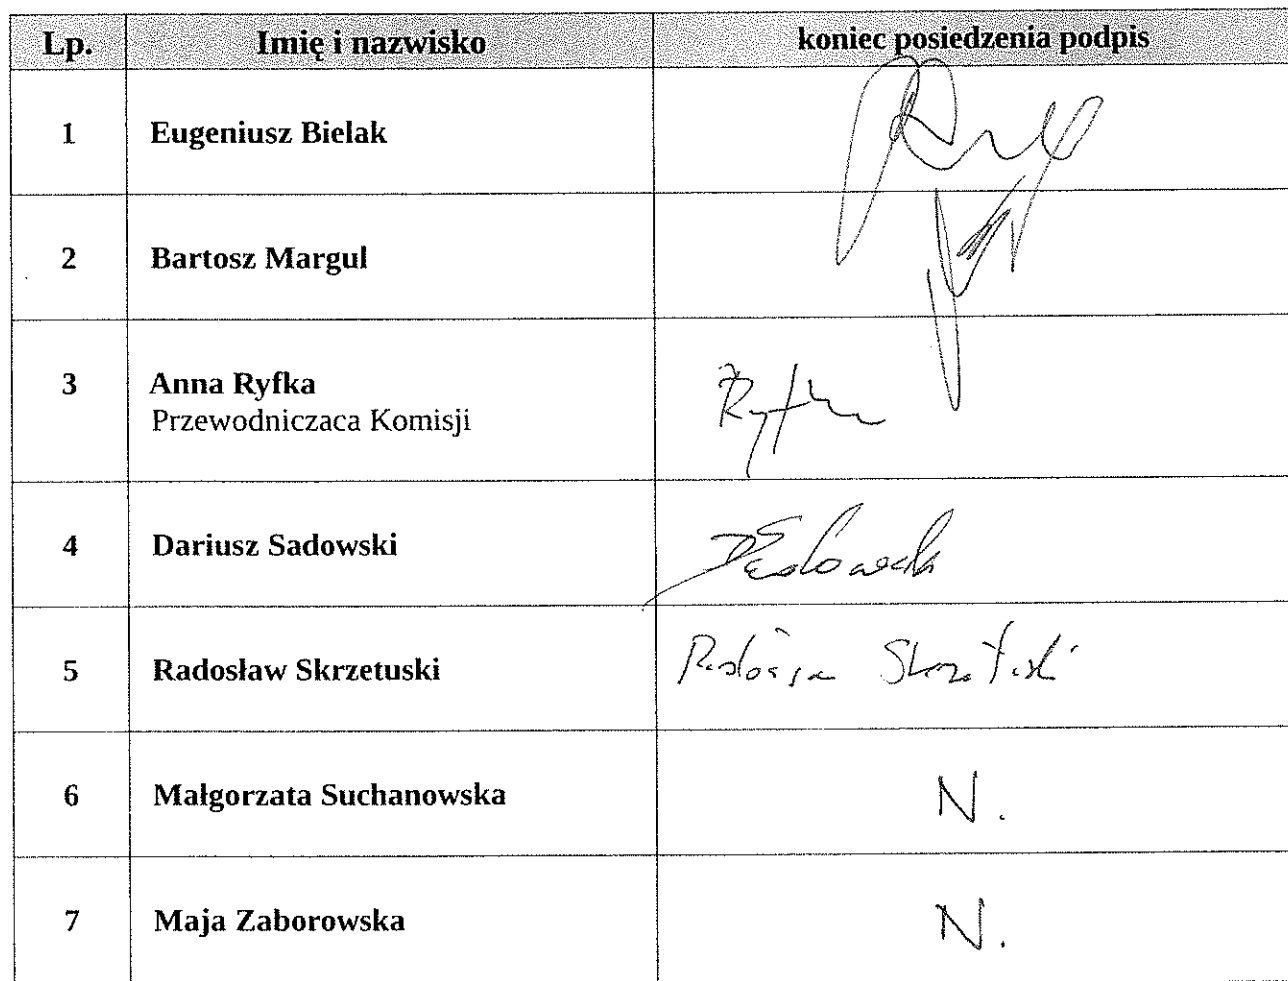 Lp. Imię i nazwisko koniec posiedzenia podpis
1 Eugeniusz Bielak
2 Bartosz Margul
3 Anna Ryfka
Przewodniczaca Komisji
4 Dariusz Sadowski
5 Radosław Skrzetuski
6 Małgorzata Suchanowska N.
7 Maja Zaborowska N.